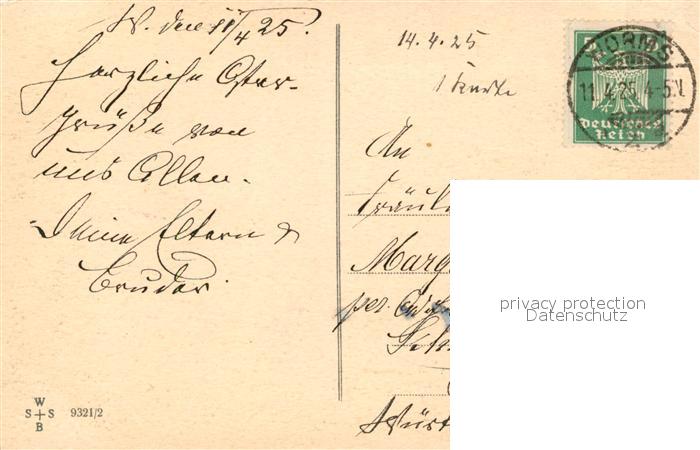 W. den 11/4 25.
Herzliche Oster-
grüße von
uns Allen.
Deine Eltern &
Bruder.
14.4.25
1 Karte
5
WORMS
11.4.25. 4-5N.
Deutsches
Reich
An
Fräul
Marg
per.
Würt
privacy protection
Datenschutz
W
S + S
B
9321/2